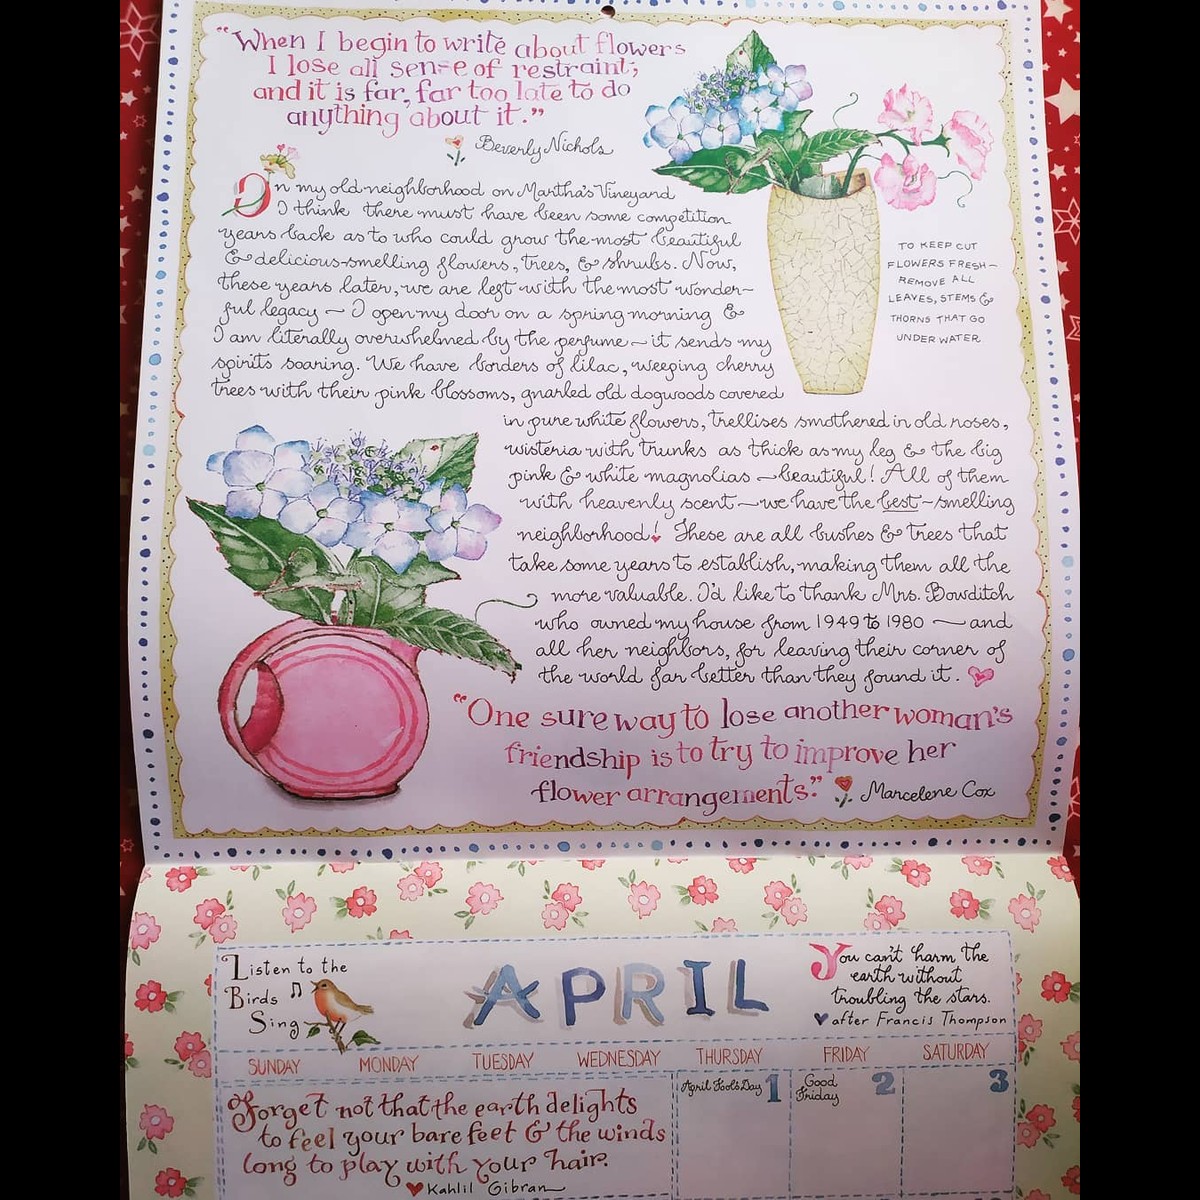 “When I begin to write about flowers
I lose all sense of restraint;
and it is far, far too late to do
anything about it.”
Beverly Nichols
In my old neighborhood on Martha's Vineyard
I think there must have been some competition
years back as to who could grow the most beautiful
& delicious-smelling flowers, trees, & shrubs. Now,
these years later, we are left with the most wonder-
ful legacy ~ I open my door on a spring morning &
I am literally overwhelmed by the perfume ~ it sends my
spirits soaring. We have borders of lilac, weeping cherry
trees with their pink blossoms, gnarled old dogwoods covered
in pure white flowers, trellises smothered in old roses,
wisteria with trunks as thick as my leg & the big
pink & white magnolias ~ beautiful! All of them
with heavenly scent ~ we have the best-smelling
neighborhood! These are all bushes & trees that
take some years to establish, making them all the
more valuable. I'd like to thank Mrs. Bowditch
who owned my house from 1949 to 1980 ~ and
all her neighbors, for leaving their corner of
the world far better than they found it.
TO KEEP CUT
FLOWERS FRESH~
REMOVE ALL
LEAVES, STEMS &
THORNS THAT GO
UNDER WATER
“One sure way to lose another woman's
friendship is to try to improve her
flower arrangements.”
Marcelene Cox
Listen to the
Birds
Sing
APRIL
You can't harm the
earth without
troubling the stars.
after Francis Thompson
SUNDAY MONDAY TUESDAY WEDNESDAY THURSDAY FRIDAY SATURDAY
Forget not that the earth delights
to feel your bare feet & the winds
long to play with your hair.
Kahlil Gibran
April Fool's Day 1
Good
Friday 2
3